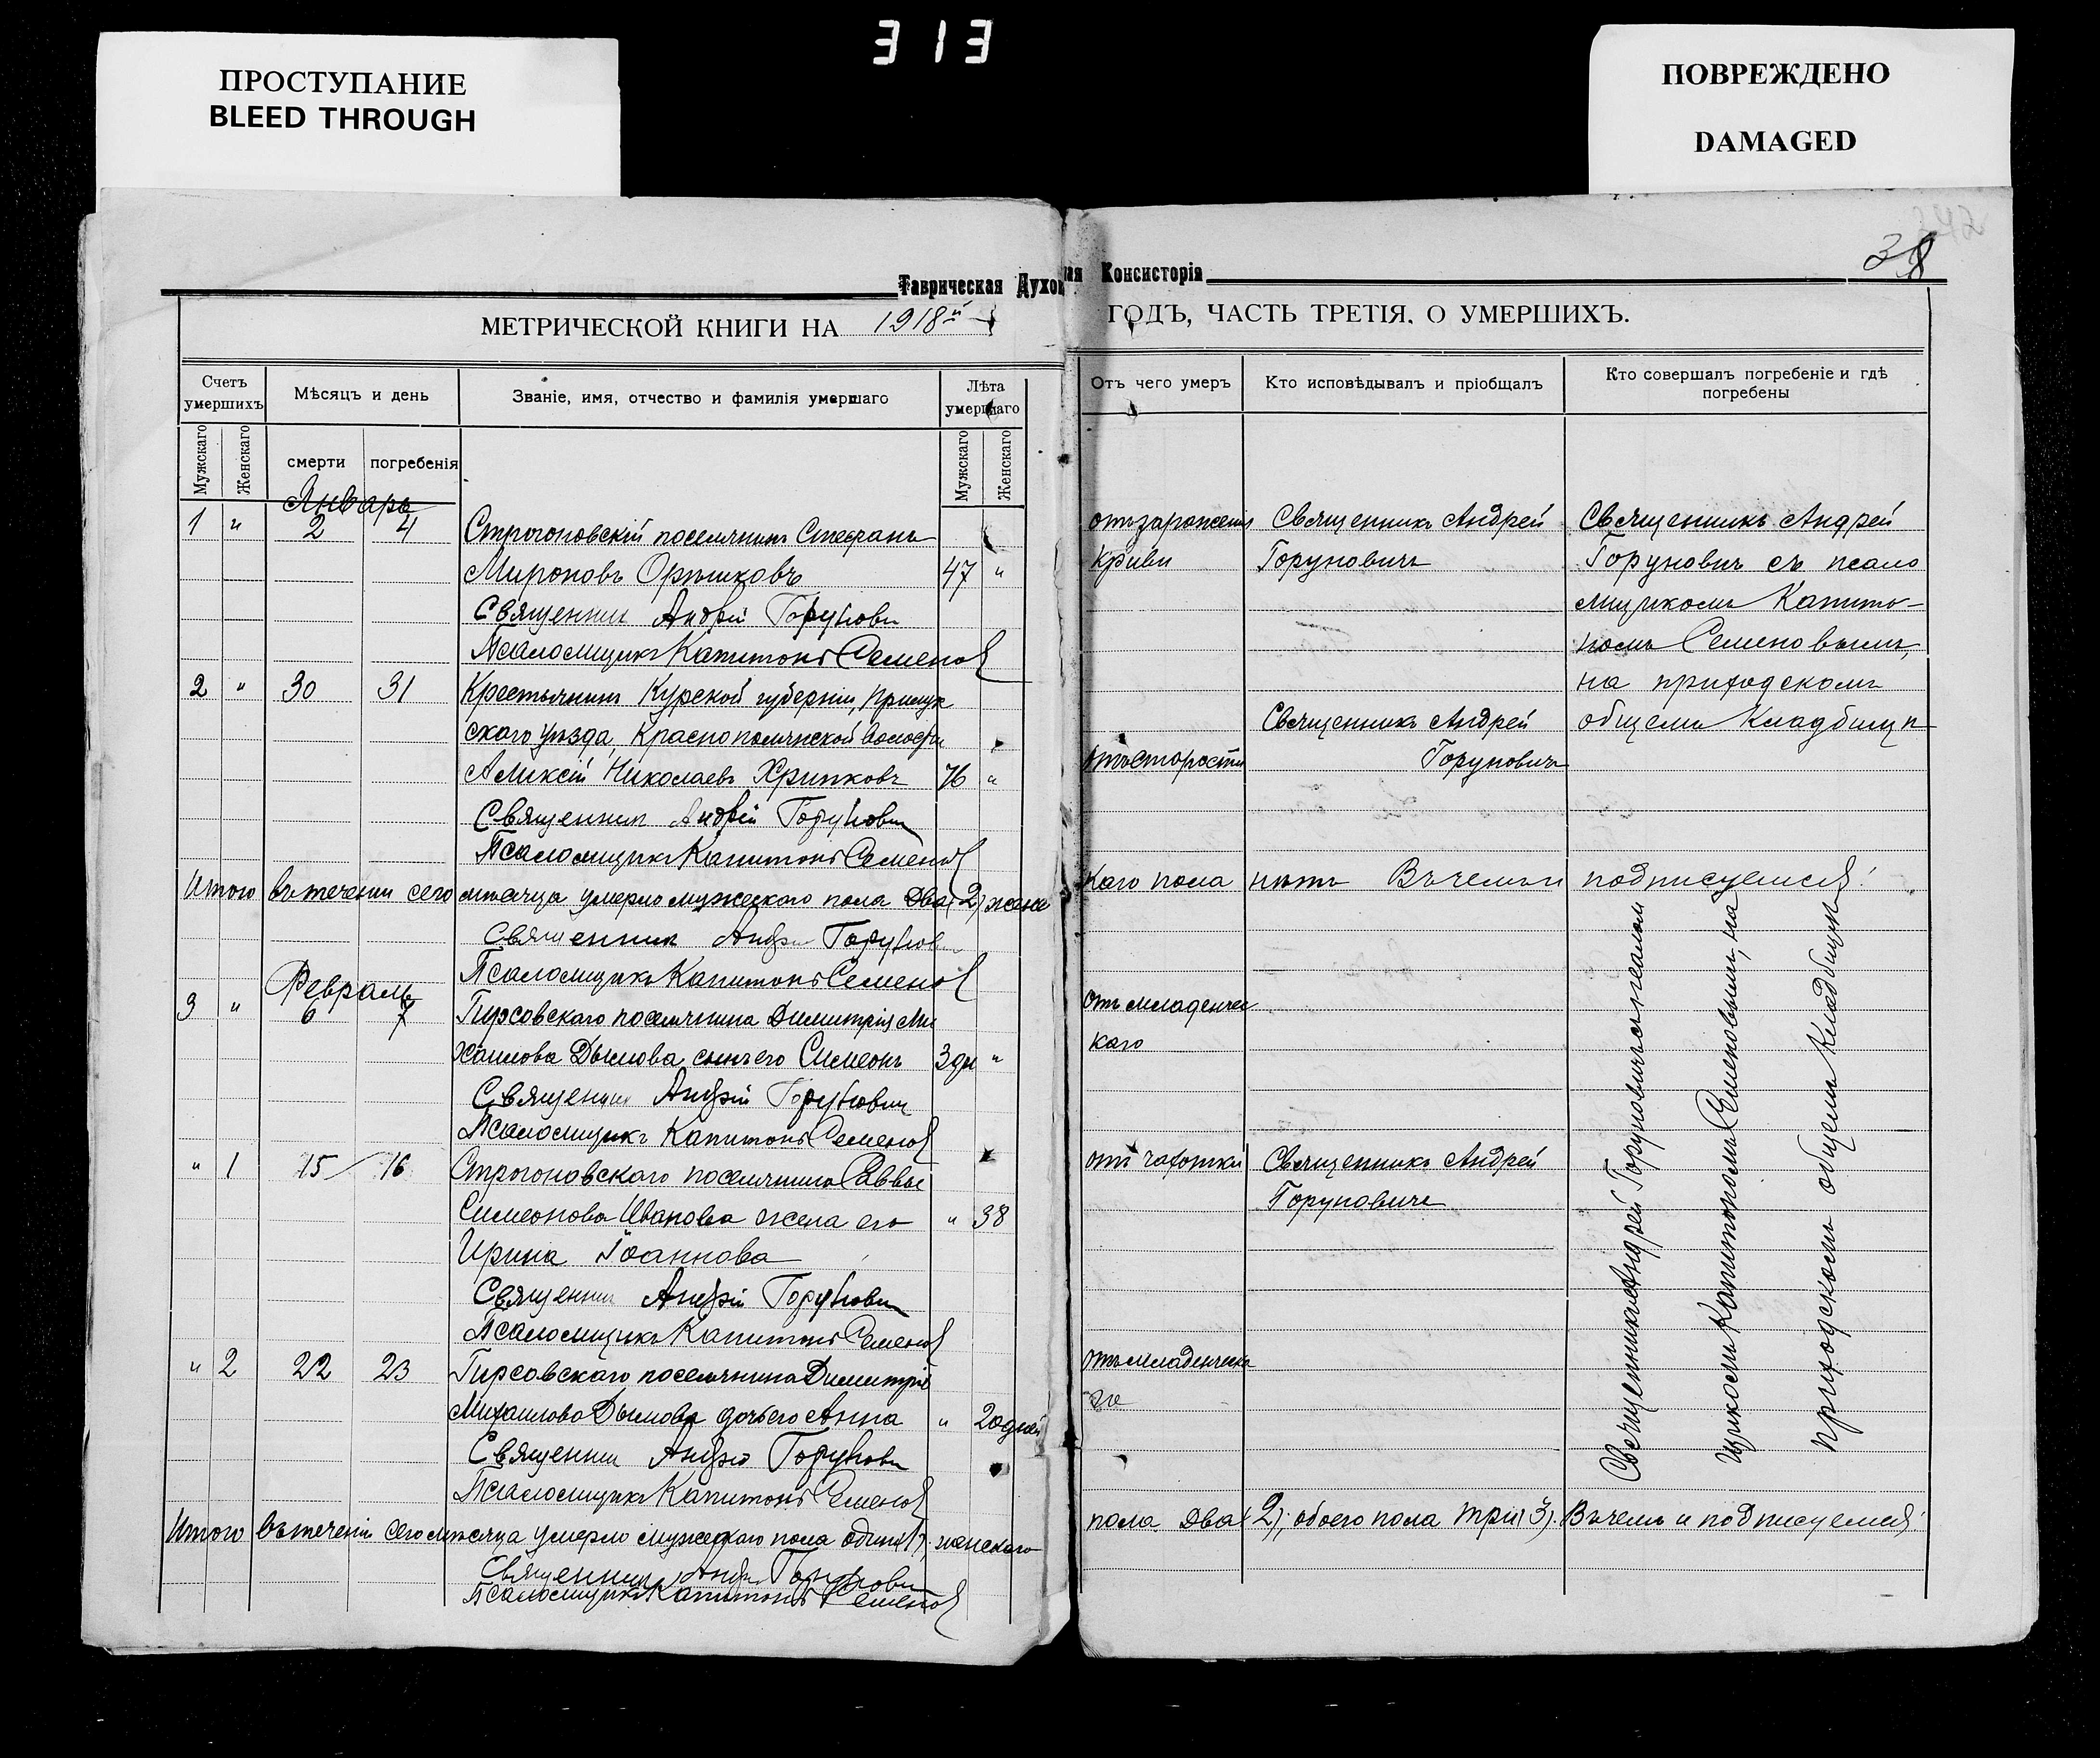 313
ПРОСТУПАНИЕ
BLEED THROUGH
ПОВРЕЖДЕНО
DAMAGED
38
Таврическая Духов
ая Консисторія
МЕТРИЧЕСКОЙ КНИГИ НА 1918й
ГОДЪ, ЧАСТЬ ТРЕТІЯ, О УМЕРШИХЪ.
Счетъ умершихъ
Мужскаго
Женскаго
Мѣсяцъ и день
смерти
погребенія
Званіе, имя, отчество и фамилія умершаго
Лѣта умершаго
Мужскаго
Женскаго
Январь
1 " 2 4 Строгоновскій поселянинъ Стефанъ
Мироновъ Орѣшковъ 47 "
Священник Андрей Горунович
Псаломщикъ Капитонъ Семенов
2 " 30 31 Крестьянинъ Курской губерніи,
скаго уѣзда, Краснополянской волости
Алексій Николаевъ Хрипковъ 76 "
Священник Андрей Горунович
Псаломщикъ Капитонъ Семенов
Итого въ теченіи сего мѣсяца умерло мужескаго пола два (2) женс
Священник Андрей Горунович
Псаломщикъ Капитонъ Семенов
Февраль
3 " 6 7 Гирсовскаго поселянина Димитрія Ми
хаилова Дымова сынъ его Симеонъ 3 дн "
Священник Андрей Горунович
Псаломщикъ Капитонъ Семенов
" 1 15 16 Строгоновскаго поселянина Саввы
Симеонова Иванова жена его " 38
Ирина Іоаннова
Священник Андрей Горунович
Псаломщикъ Капитонъ Семенов
" 2 22 23 Гирсовскаго поселянина Димитрія
Михаилова Дымова дочь его Анна " 20 дней
Священник Андрей Горунович
Псаломщикъ Капитонъ Семенов
Итого въ теченіи сего мѣсяца умерло мужескаго пола одинъ (1), женскаго
Священник Андрей Горунович
Псаломщикъ Капитонъ Семенов
Отъ чего умеръ
Кто исповѣдывалъ и пріобщалъ
Кто совершалъ погребеніе и гдѣ погребены
отъ зараженія Священникъ Андрей Священникъ Андрей
крови Горуновичъ Горунович съ псало
мщикомъ Капито-
номъ Семеновымъ,
на приходскомъ
Священникъ Андрей общемъ кладбищѣ
отъ старости Горуновичъ
каго пола нѣтъ Въ чемъ и подписуемся:
отъ младенчес
каго
отъ чахотки Священникъ Андрей
Горуновичъ
отъ младенческа
го
Священникъ Андрей Горуновичъ съ псалом
щикомъ Капитономъ Семеновымъ, на
приходскомъ общемъ кладбищѣ
пола два (2), обоего пола три (3). Въ чемъ и подписуемся: